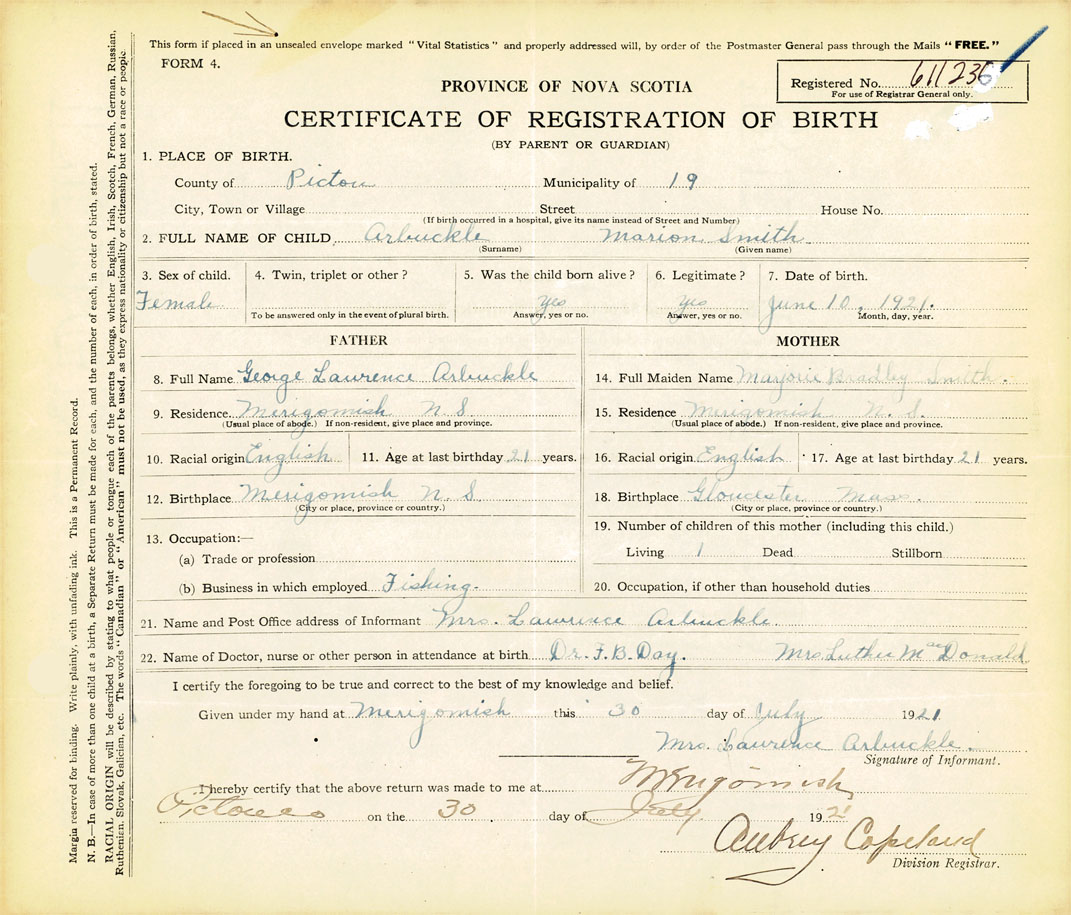 This form if placed in an unsealed envelope marked "Vital Statistics" and properly addressed will, by order of the Postmaster General pass through the Mails "FREE."
FORM 4.
Registered No. 611236
For use of Registrar General only.
PROVINCE OF NOVA SCOTIA
CERTIFICATE OF REGISTRATION OF BIRTH
(BY PARENT OR GUARDIAN)
1. PLACE OF BIRTH.
County of Pictou Municipality of 19
City, Town or Village Street House No.
(If birth occurred in a hospital, give its name instead of Street and Number)
2. FULL NAME OF CHILD Arbuckle Marion Smith
(Surname) (Given name)
3. Sex of child. 4. Twin, triplet or other? 5. Was the child born alive? 6. Legitimate? 7. Date of birth.
Female yes yes June 10, 1921.
To be answered only in the event of plural birth. Answer, yes or no. Answer, yes or no. Month, day, year.
FATHER MOTHER
8. Full Name George Lawrence Arbuckle 14. Full Maiden Name Marjorie Bradley Smith.
9. Residence Merigomish N. S. 15. Residence Merigomish N. S.
(Usual place of abode.) If non-resident, give place and province. (Usual place of abode.) If non-resident, give place and province.
10. Racial origin English 11. Age at last birthday 21 years. 16. Racial origin English 17. Age at last birthday 21 years.
12. Birthplace Merigomish N. S. 18. Birthplace Gloucester Mass.
(City or place, province or country.) (City or place, province or country.)
13. Occupation:— 19. Number of children of this mother (including this child.)
(a) Trade or profession Living 1 Dead Stillborn
(b) Business in which employed Fishing. 20. Occupation, if other than household duties
21. Name and Post Office address of Informant Mrs. Lawrence Arbuckle.
22. Name of Doctor, nurse or other person in attendance at birth Dr. F. B. Day. Mrs Luther MacDonald
I certify the foregoing to be true and correct to the best of my knowledge and belief.
Given under my hand at Merigomish this 30 day of July 1921
Mrs. Lawrence Arbuckle.
Signature of Informant.
I hereby certify that the above return was made to me at Merigomish
Pictou co on the 30 day of July 1921
Aubrey Copeland
Division Registrar.
Margin reserved for binding. Write plainly, with unfading ink. This is a Permanent Record.
N. B.—In case of more than one child at a birth, a Separate Return must be made for each, and the number of each, in order of birth, stated.
RACIAL ORIGIN will be described by stating to what people or tongue each of the parents belongs, whether English, Irish, Scotch, French, German, Russian,
Ruthenian, Slovak, Galician, etc. The words "Canadian" or "American" must not be used, as they express nationality or citizenship but not a race or people.